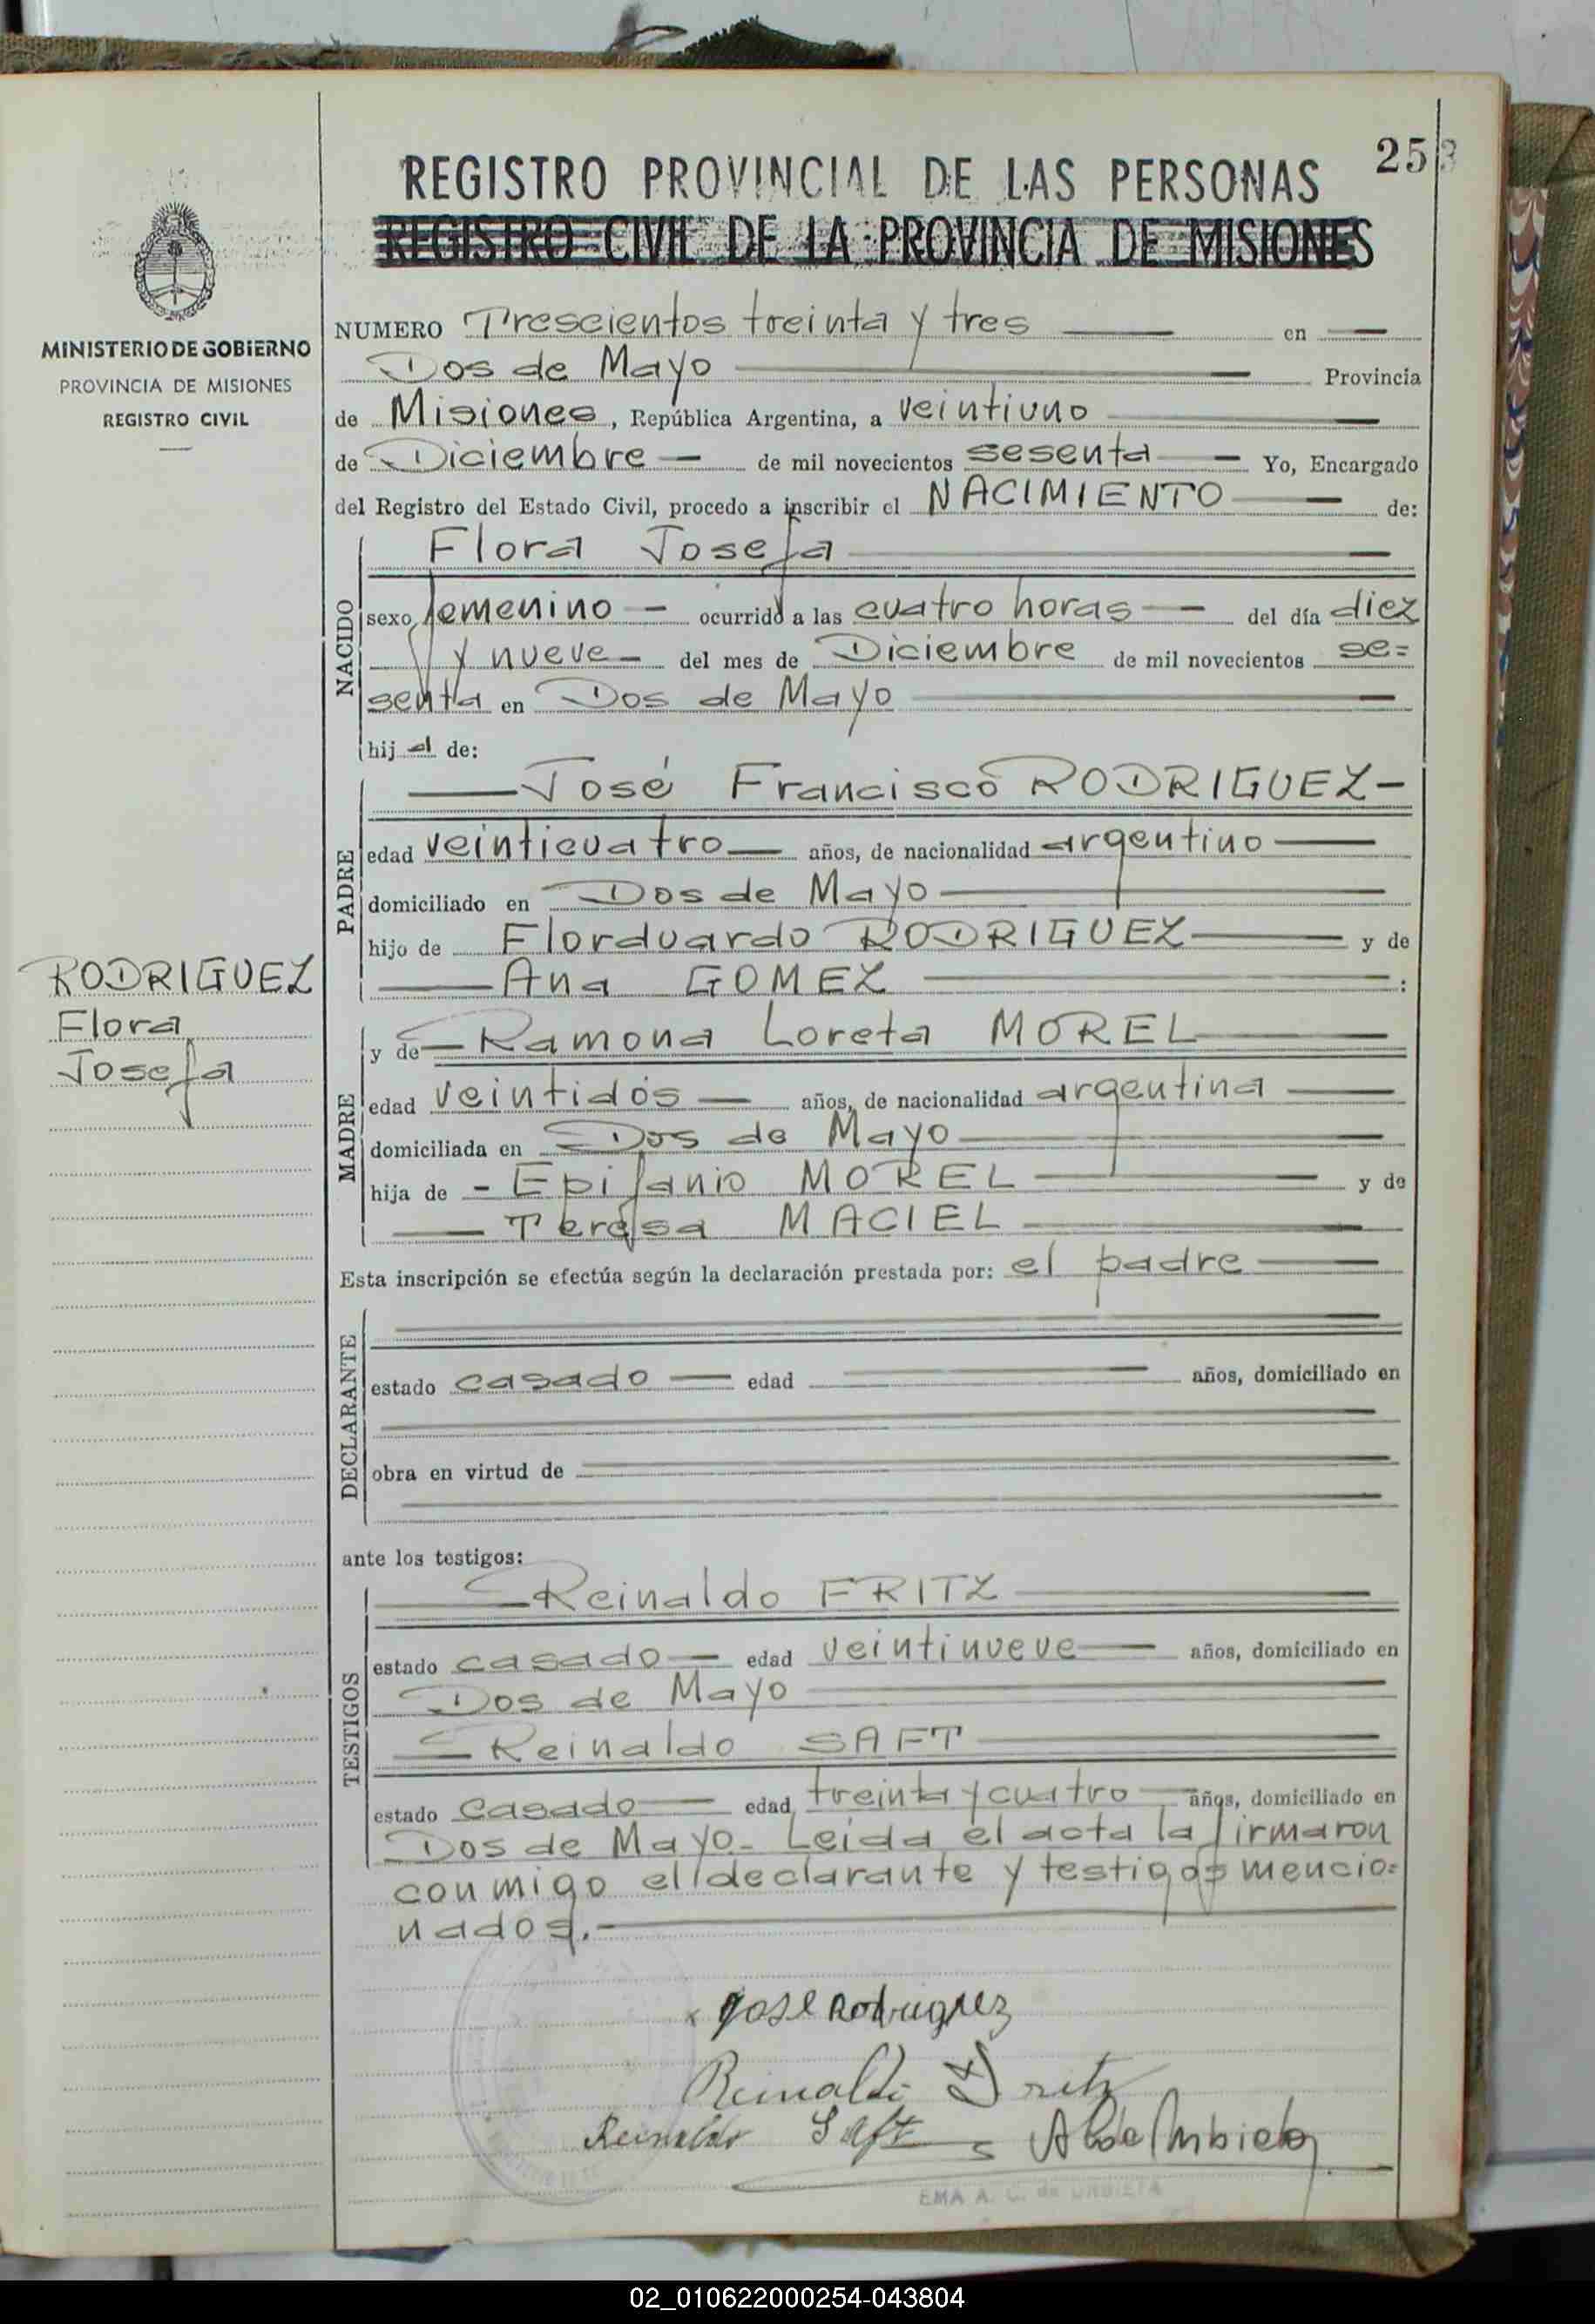 253
REGISTRO PROVINCIAL DE LAS PERSONAS
REGISTRO CIVIL DE LA PROVINCIA DE MISIONES
MINISTERIO DE GOBIERNO
PROVINCIA DE MISIONES
REGISTRO CIVIL
NUMERO Trescientos treinta y tres en
Dos de Mayo Provincia
de Misiones, República Argentina, a veintiuno
de Diciembre - de mil novecientos sesenta - Yo, Encargado
del Registro del Estado Civil, procedo a inscribir el NACIMIENTO de:
NACIDO
Flora Josefa
sexo femenino - ocurrido a las cuatro horas - del día diez
y nueve - del mes de Diciembre de mil novecientos se=
senta en Dos de Mayo
hij a de:
PADRE
José Francisco RODRIGUEZ-
edad veinticuatro años, de nacionalidad argentino
domiciliado en Dos de Mayo
hijo de Florduardo RODRIGUEZ y de
Ana GOMEZ :
RODRIGUEZ
Flora
Josefa
MADRE
y de Ramona Loreta MOREL
edad veintidós años, de nacionalidad argentina
domiciliada en Dos de Mayo
hija de - Epifanio MOREL y de
Teresa MACIEL
Esta inscripción se efectúa según la declaración prestada por: el padre
DECLARANTE
estado casado edad años, domiciliado en
obra en virtud de
ante los testigos:
TESTIGOS
Reinaldo FRITZ
estado casado edad veintinueve años, domiciliado en
Dos de Mayo
Reinaldo SAFT
estado casado edad treinta y cuatro años, domiciliado en
Dos de Mayo.- Leída el acta la firmaron
conmigo el declarante y testigos mencio=
nados.-
x José Rodriguez
Reinaldo Fritz
Reinaldo Saft
EMA A. C. de URBIETA
02_010622000254-043804